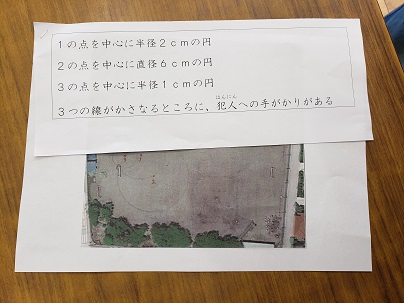 1の点を中心に半径2cmの円
2の点を中心に直径6cmの円
3の点を中心に半径1cmの円
はんにん
3つの線がかさなるところに、犯人への手がかりがある